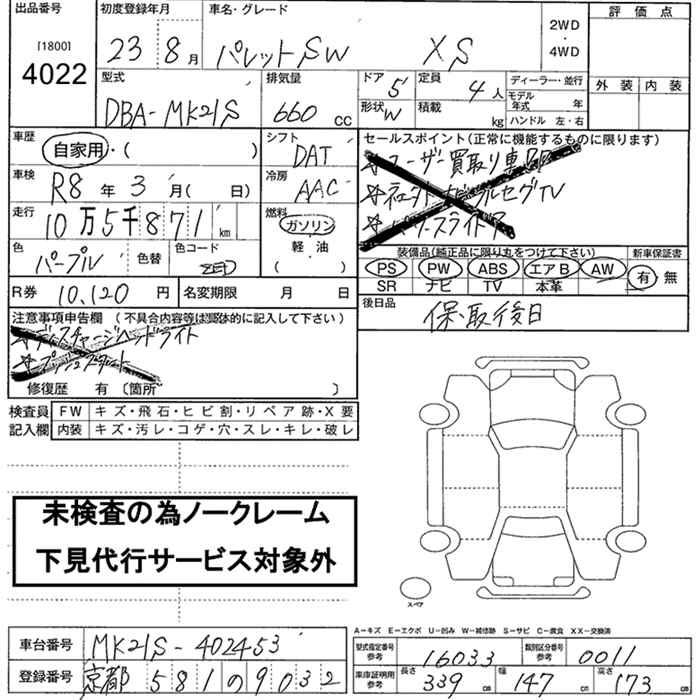 出品番号
[1800]
4022
初度登録年月
23 8月
車名・グレード
パレットSW XS
2WD
・
4WD
評価点
外装 内装
型式
DBA-MK21S
排気量
660 CC
ドア 5
形状 W
定員 4人
積載 kg
ディーラー・並行
モデル年式 年
ハンドル 左・右
車歴
自家用・( )
シフト
DAT
セールスポイント(正常に機能するものに限ります)
車検
R8年 3月( 日)
冷房
AAC
走行
10万5千871km
燃料
ガソリン
軽・油
( )
色
パープル
色替
色コード
装備品(純正品に限り丸をつけて下さい)
PS PW ABS エアB AW
SR ナビ TV 本革
新車保証書
有 無
R券 10,120円
名変期限 月 日
後日品
保、取後日
注意事項申告欄 (不具合内容等は具体的に記入して下さい)
ディスチャージヘッドライト
プッシュスタート
修復歴 有 〔箇所 〕
検査員記入欄
FW キズ・飛石・ヒビ割・リペア跡・X要
内装 キズ・汚レ・コゲ・穴・スレ・キレ・破レ
未検査の為ノークレーム
下見代行サービス対象外
スペア
A-キズ E-エクボ U-凹み W-補修跡 S-サビ C-腐食 XX-交換済
車台番号 MK21S-402453
登録番号 京都 581 の 9032
型式指定番号 参考 16033
類別区分番号 参考 0011
車庫証明用 参考
長さ 339cm
幅 147cm
高さ 173cm